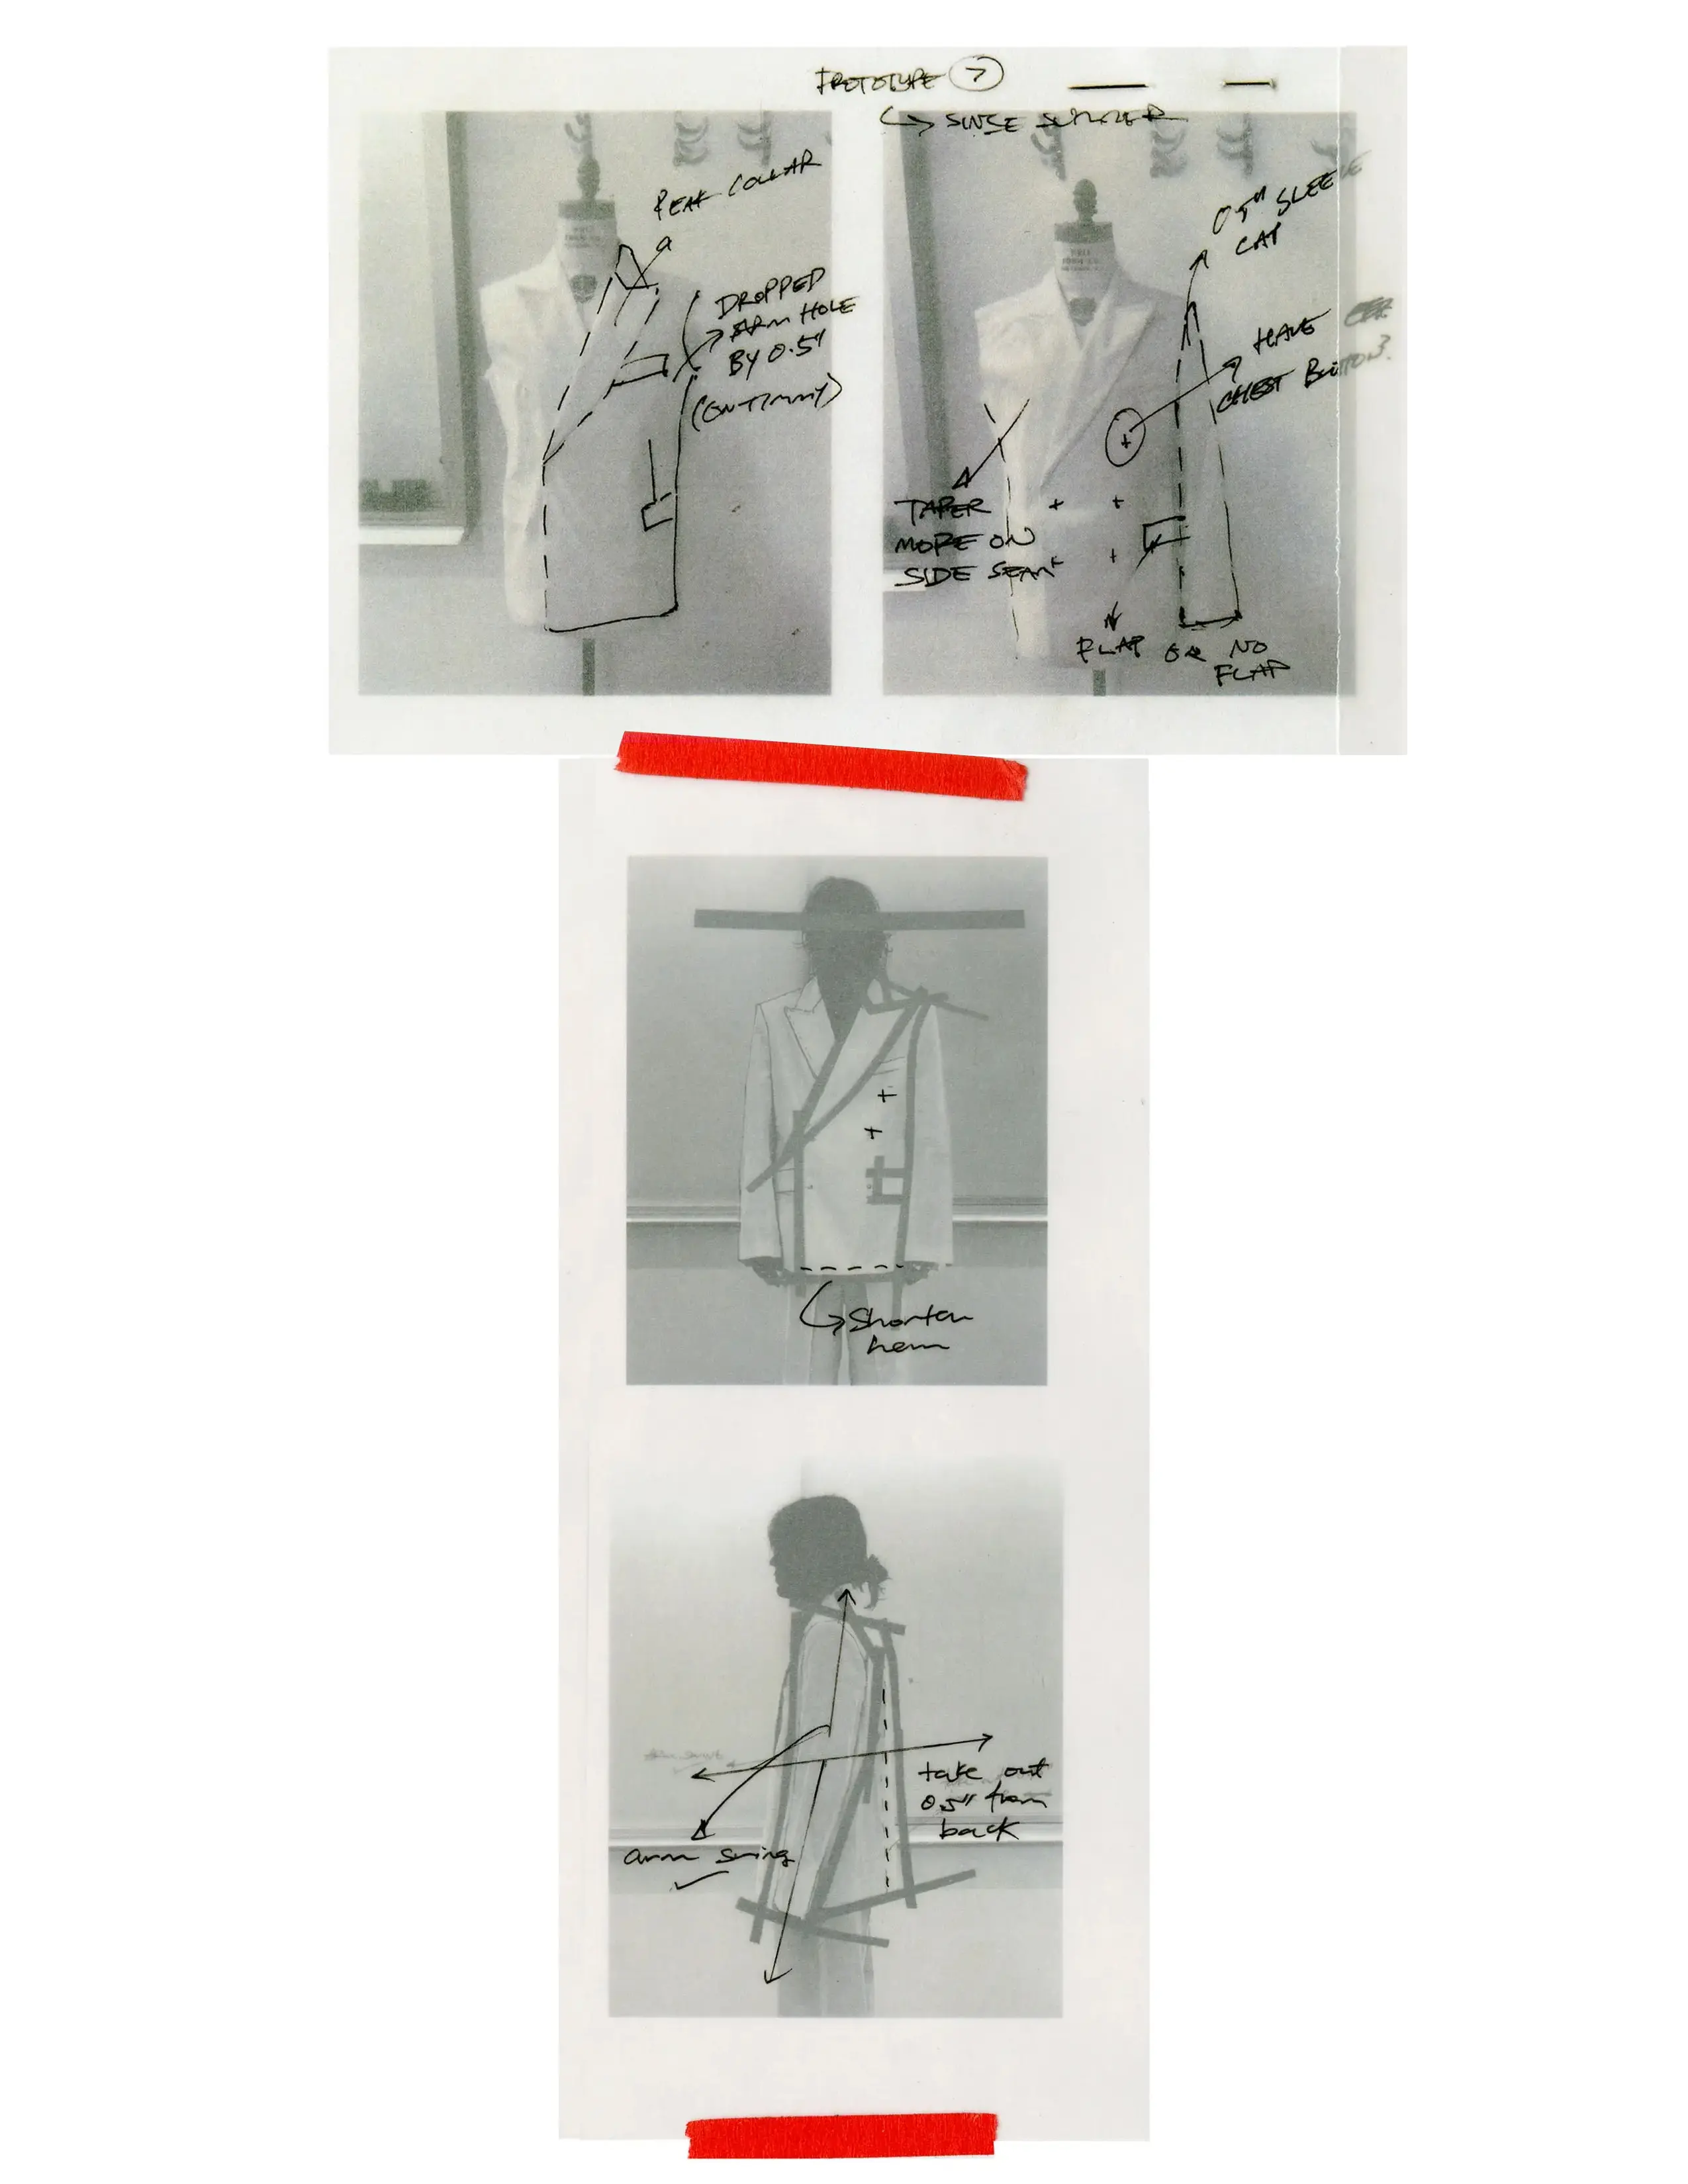 PROTOTYPE
PEAK COLLAR
DROPPED
ARM HOLE
BY 0.5"
0.5" SLEEVE
CAP
HAVE
CHEST BUTTON?
TAPER
MORE ON
SIDE SEAM
FLAP OR NO
FLAP
Shorten
hem
take out
0.5" from
back
arm swing